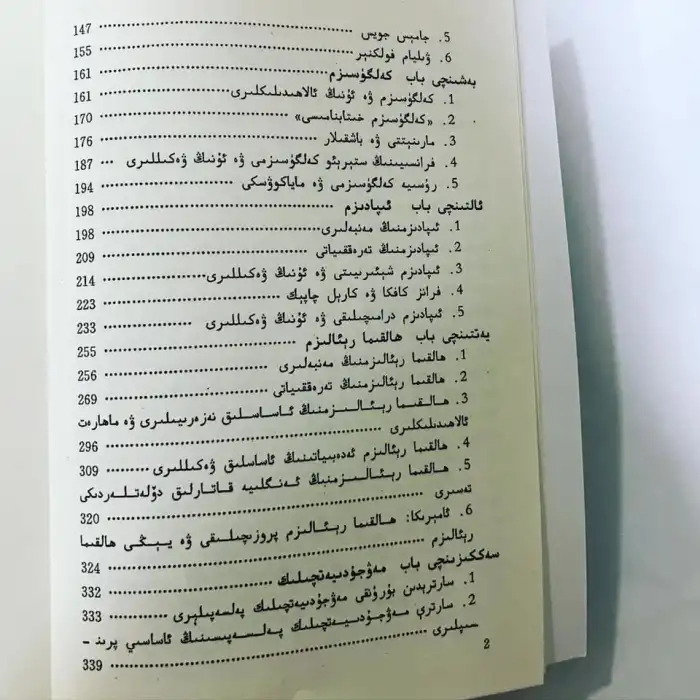 5. جامېس جويس ......... 147
6. ۋىليام فولكنېر ......... 155
بەشىنچى باب كەلگۈسىزم ......... 161
1. كەلگۈسىزم ۋە ئۇنىڭ ئالاھىدىلىكلىرى ......... 161
2. «كەلگۈسىزم خىتابنامىسى» ......... 170
3. مارىنېتتى ۋە باشقىلار ......... 176
4. فرانسىيىنىڭ ستېرېئو كەلگۈسىزمى ۋە ئۇنىڭ ۋەكىللىرى ... 187
5. رۇسىيە كەلگۈسىزمى ۋە ماياكوۋسكى ......... 194
ئالتىنچى باب ئىپادىزم ......... 198
1. ئىپادىزمنىڭ مەنبەلىرى ......... 198
2. ئىپادىزمنىڭ تەرەققىياتى ......... 209
3. ئىپادىزم شېئىرىيىتى ۋە ئۇنىڭ ۋەكىللىرى ......... 214
4. فرانز كافكا ۋە كارېل چاپېك ......... 223
5. ئىپادىزم درامىچىلىقى ۋە ئۇنىڭ ۋەكىللىرى ......... 233
يەتتىنچى باب ھالقىما رېئالىزم ......... 255
1. ھالقىما رېئالىزمنىڭ مەنبەلىرى ......... 256
2. ھالقىما رېئالىزمنىڭ تەرەققىياتى ......... 269
3. ھالقىما رېئالىزمنىڭ ئاساسلىق نەزەرىيىلىرى ۋە ماھارەت
ئالاھىدىلىكلىرى ......... 296
4. ھالقىما رېئالىزم ئەدەبىياتىنىڭ ئاساسلىق ۋەكىللىرى ......... 309
5. ھالقىما رېئالىزمنىڭ ئەنگلىيە قاتارلىق دۆلەتلەردىكى
تەسىرى ......... 320
6. ئامېرىكا: ھالقىما رېئالىزم پروزىچىلىقى ۋە يېڭى ھالقىما
رېئالىزم ......... 324
سەككىزىنچى باب مەۋجۇدىيەتچىلىك ......... 332
1. سارترېدىن بۇرۇنقى مەۋجۇدىيەتچىلىك پەلسەپىلېرى ......... 333
2. سارترې مەۋجۇدىيەتچىلىك پەلسەپىسىنىڭ ئاساسىي پرىن -
سىپلىرى ......... 339
2